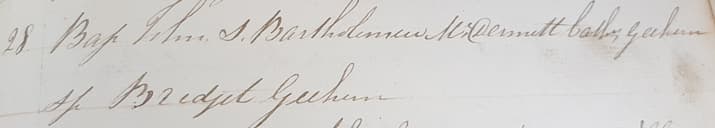 28 Bap John S. Bartholomew McDermott Cathy Geehern
sp Bridget Geehern